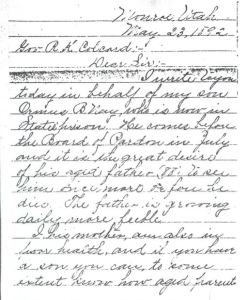 Monroe, Utah
May 23, 1892
Gov.
Dear Sir:-
I write to you
today in behalf of my son
who is now in
State prison. He comes before
the Board of Pardon in July
and it is the great desire
of his aged father, to see
him once more before he
dies. The father is growing
daily more feeble.
I his mother, am also in
poor health, and if you have
a son you can to some
extent know how aged parents